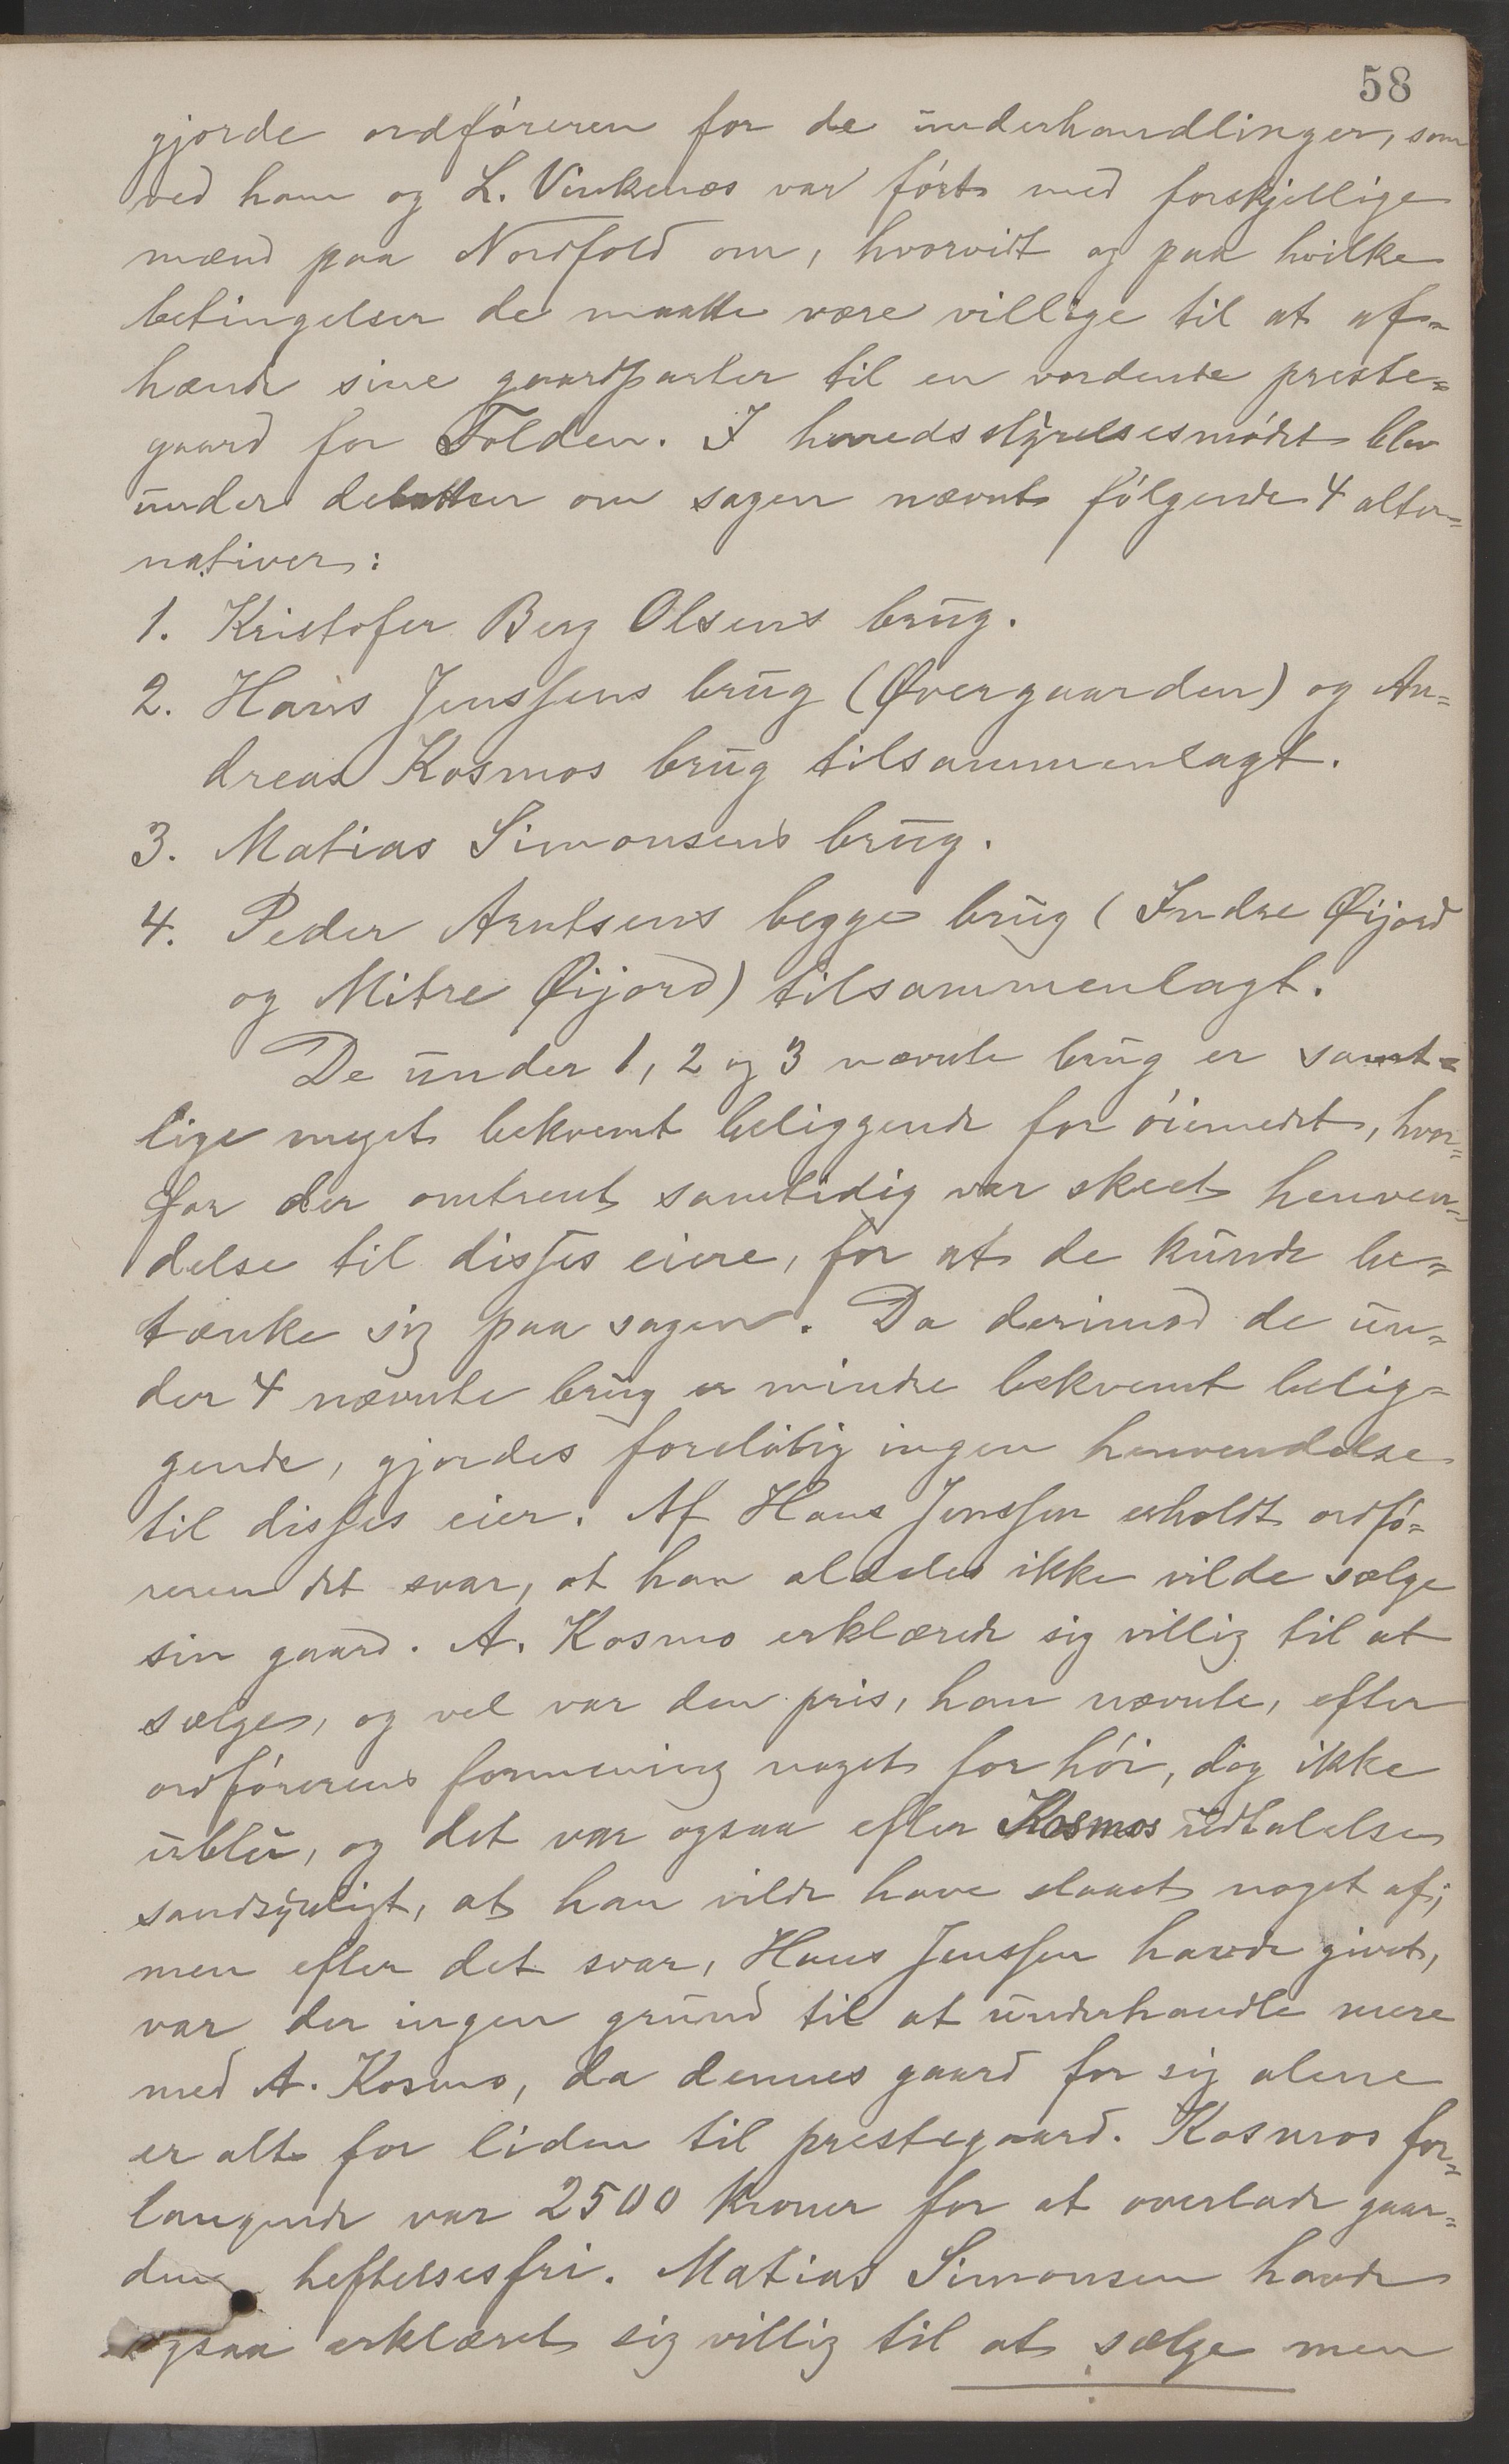 58
gjorde ordføreren for de underhandlinger, som
ved ham og L. Vinkenes var ført med forskjellige
mænd paa Nordfold om, hvorvidt og paa hvilke
betingelser de maatte være villige til at af=
hænde sine gaardparter til en vordende preste=
gaard for Folden. I herredsstyrelsesmødet blev
under debatten om sagen nævnt følgende 4 alter=
nativer:
1. Kristofer Berg Olsens brug.
2. Hans Jenssens brug (Øvergaarden) og An=
dreas Kosmos brug tilsammenlagt.
3. Matias Simonsens brug.
4. Peder Arntsens begge brug (Indre Øijord
og Mitre Øijord) tilsammenlagt.
De under 1, 2 og 3 nævnte brug er samt=
lige meget bekvemt beliggende for øiemedet, hvor=
for der omtrent samtidig var skeet henven=
delse til disses eiere, for at de kunde be=
tænke sig paa sagen. Da derimod de un=
der 4 nævnte brug er mindre bekvemt belig=
gende, gjordes foreløbig ingen henvendelse
til disses eier. Af Hans Jenssen erholdt ordfø=
reren det svar, at han aldeles ikke vilde sælge
sin gaard. A. Kosmo erklærede sig villig til at
sælge, og vel var den pris, han nævnte, efter
ordførerens formening noget for høi, dog ikke
ublu, og det var ogsaa efter Kosmos udtalelse
sandsynligt, at han vilde have slaaet noget af;
men efter det svar, Hans Jenssen havde givet,
var der ingen grund til at underhandle mere
med A. Kosmo, da dennes gaard for sig alene
er alt for liden til prestegaard. Kosmos for=
langende var 2500 kroner for at overlade gaar=
den heftelsesfri. Matias Simonsen havde
ogsaa erklæret sig villig til at sælge men